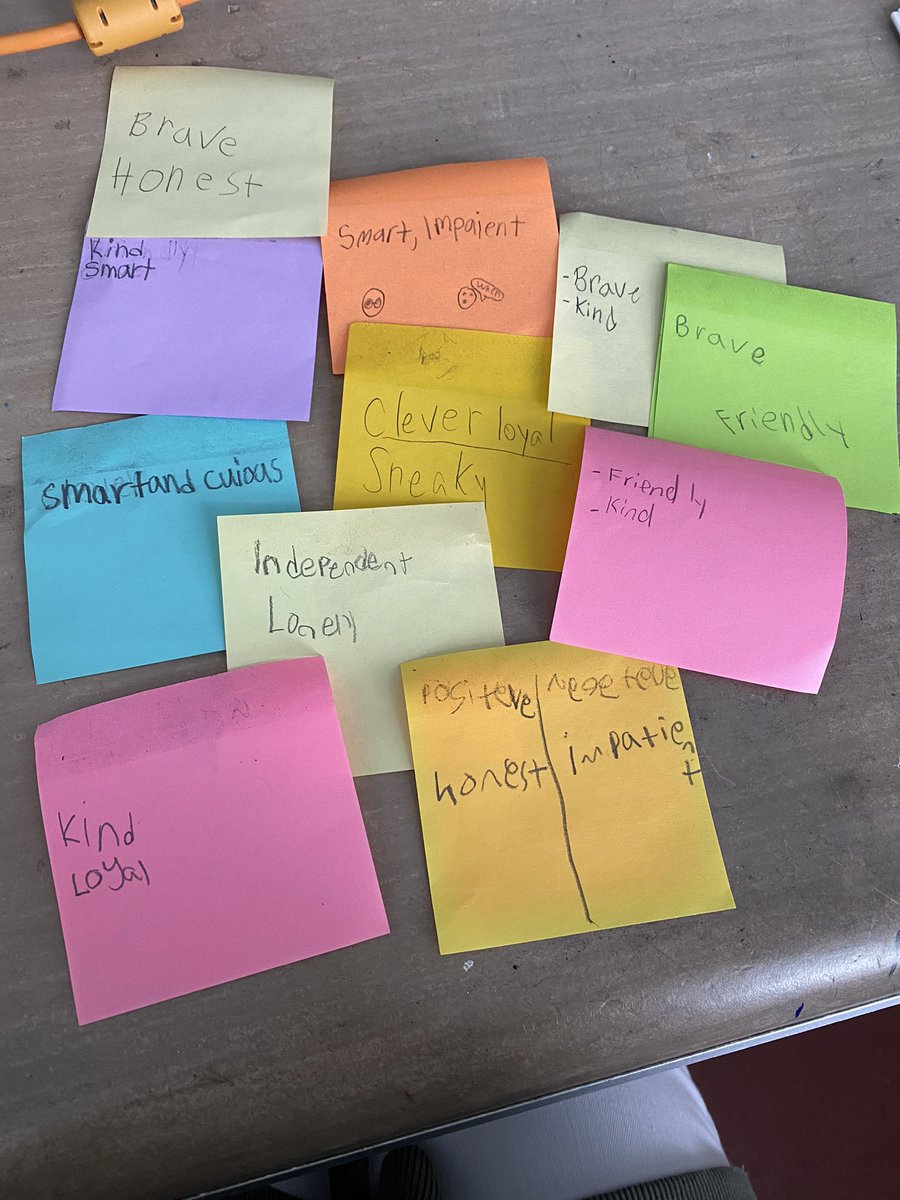 Brave
Honest
Kind
smart
Smart, Impaient
when
-Brave
-Kind
Brave
Friendly
Clever loyal
Sneaky
smart and cuious
-Friendly
-Kind
Independent
Lonely
Kind
Loyal
Positeve / negeteve
honest
impatient